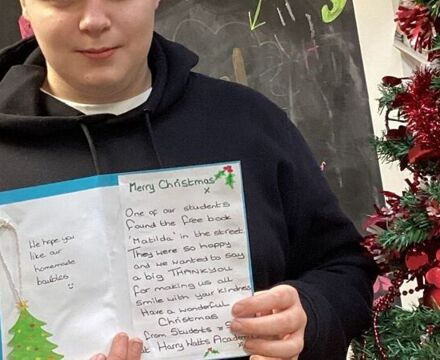 We hope you
like our
homemade
baubles
:)
Merry Christmas
x
One of our students
found the free book
'Matilda' in the street.
They were so happy
and we wanted to say
a big THANKYOU
for making us all
smile with your kindness.
Have a wonderful
Christmas
from Students
at Harry Watts Academy